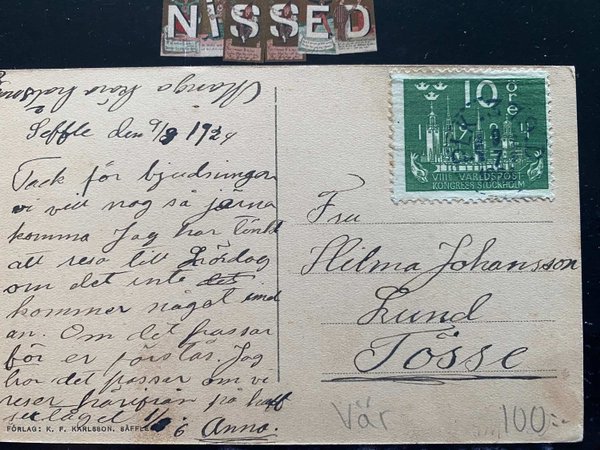 NISSED
Många kära hälsn
Seffle den 9/9 1924
Tack för bjudningen
vi vill nog så järna
komma Jag har tänkt
att resa till Lördag
om det inte det
kommer något imel
an. Om det passar
för er förstås. Jag
tror det passar om vi
reser härifrån på
6 Anna.
FÖRLAG: K. F. KARLSSON, SÄFFLE
10 öre
1924
VIII VÄRLDSPOST
KONGRESS STOCKHOLM
Fru
Hilma Johansson
Lund
Tösse
Vär
100:-